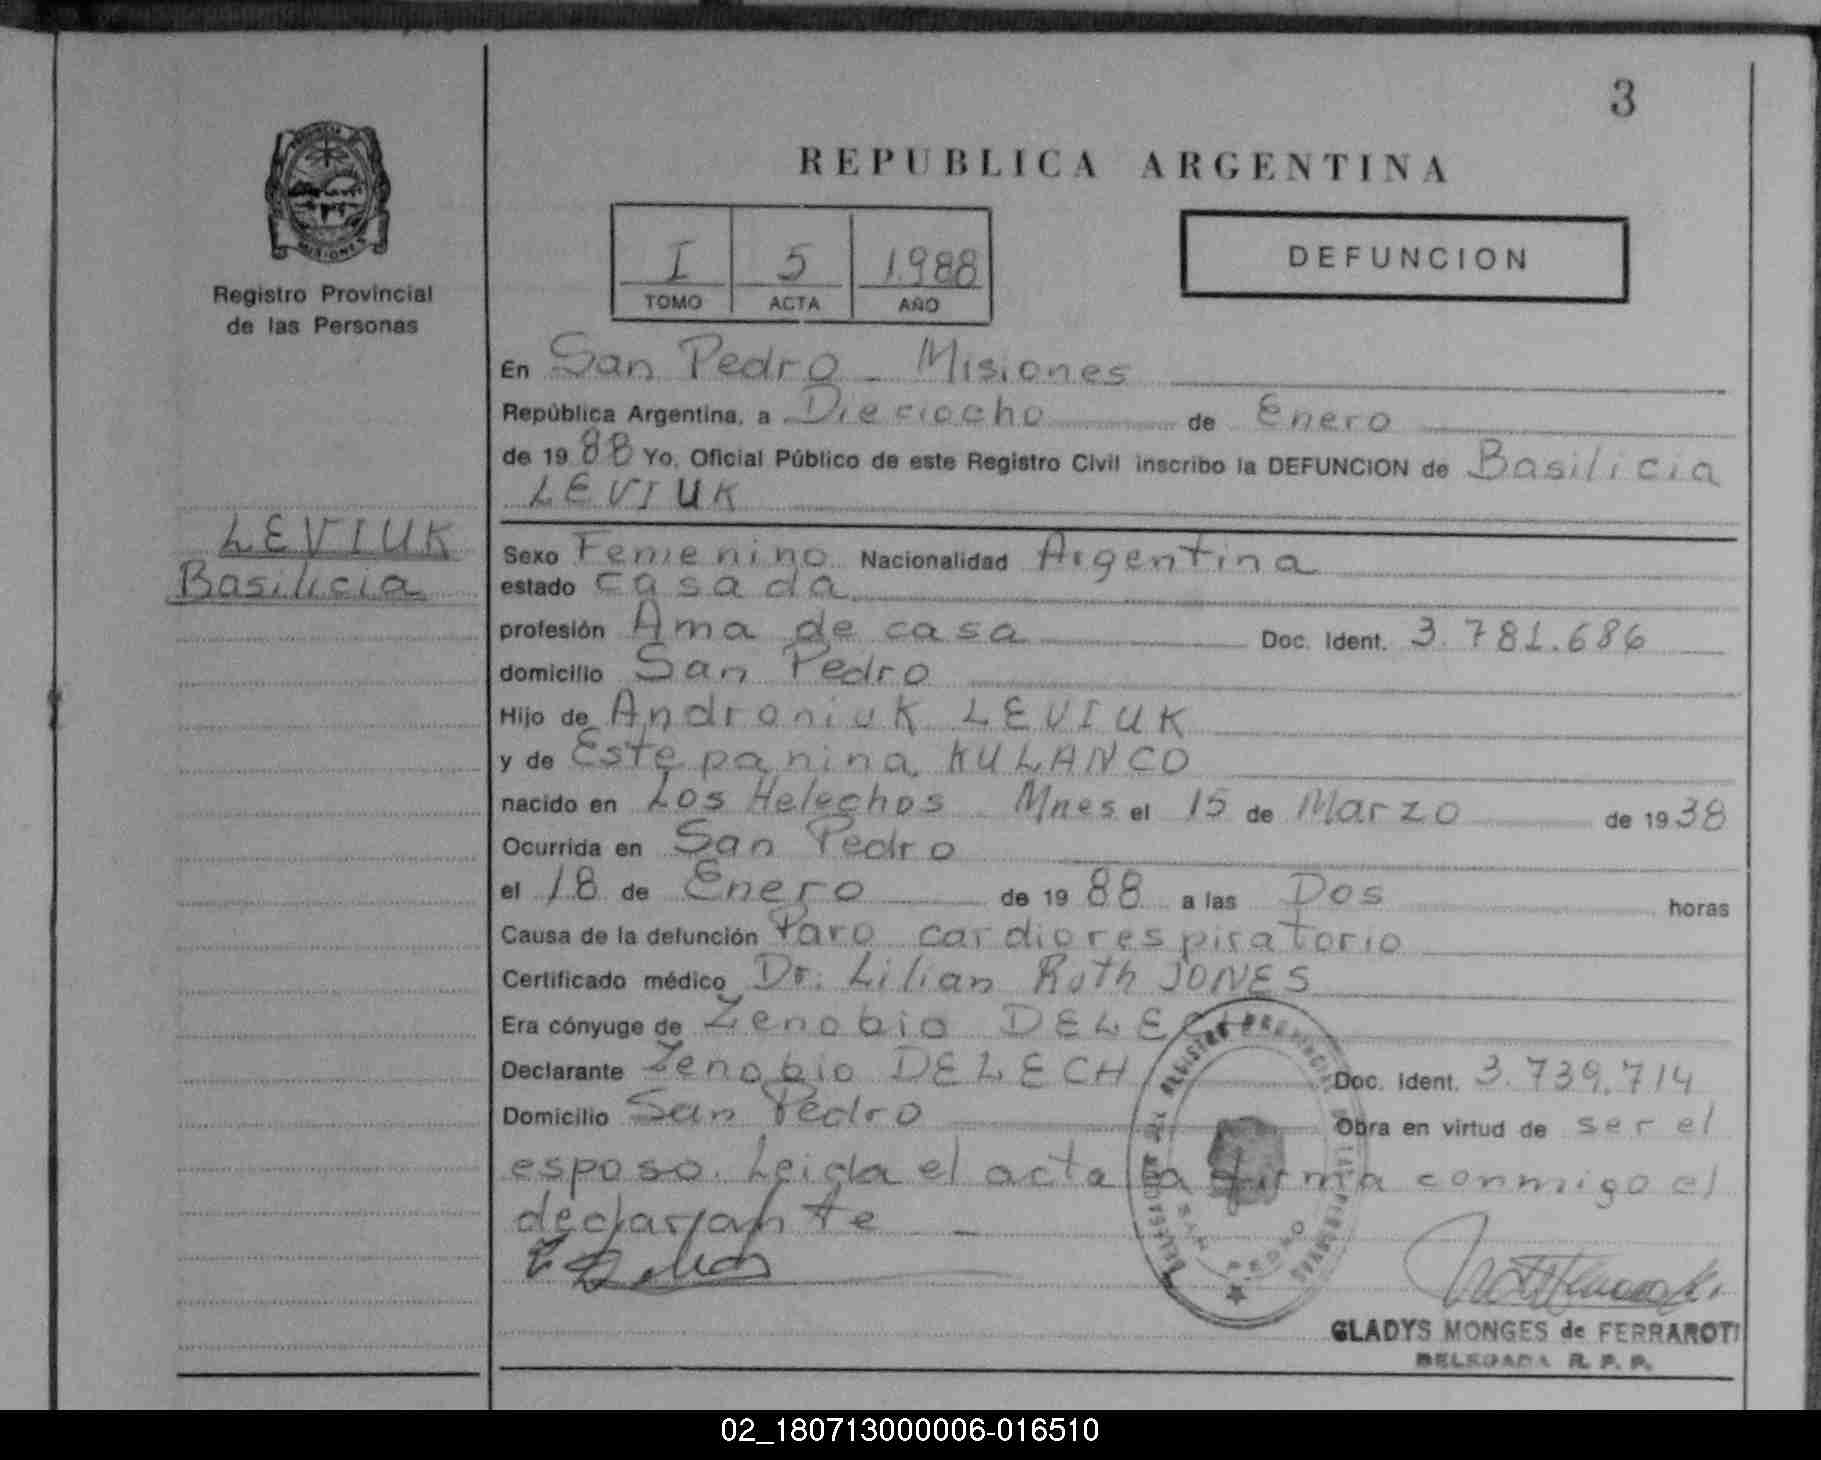 3
REPUBLICA ARGENTINA
MISIONES
Registro Provincial
de las Personas
I 5 1988
TOMO ACTA AÑO
DEFUNCION
En San Pedro - Misiones
República Argentina, a Dieciocho de Enero
de 1988 Yo, Oficial Público de este Registro Civil inscribo la DEFUNCION de Basilicia
LEVIUK
LEVIUK
Basilicia
Sexo Femenino Nacionalidad Argentina
estado casada
profesión Ama de casa Doc. Ident. 3.781.686
domicilio San Pedro
Hijo de Androniuk LEVIUK
y de Estepanina KULANCO
nacido en Los Helechos - Mnes el 15 de Marzo de 1938
Ocurrida en San Pedro
el 18 de Enero de 1988 a las Dos horas
Causa de la defunción Paro cardiorespiratorio
Certificado médico Dr. Lilian Ruth JONES
Era cónyuge de Zenobio DELECH
Declarante Zenobio DELECH Doc. Ident. 3.739.714
Domicilio San Pedro Obra en virtud de ser el
esposo. Leida el acta la firma conmigo el
declarante -
REGISTRO PROVINCIAL DE LAS PERSONAS
SAN PEDRO
GLADYS MONGES de FERRAROTI
DELEGADA R. P. P.
02_180713000006-016510